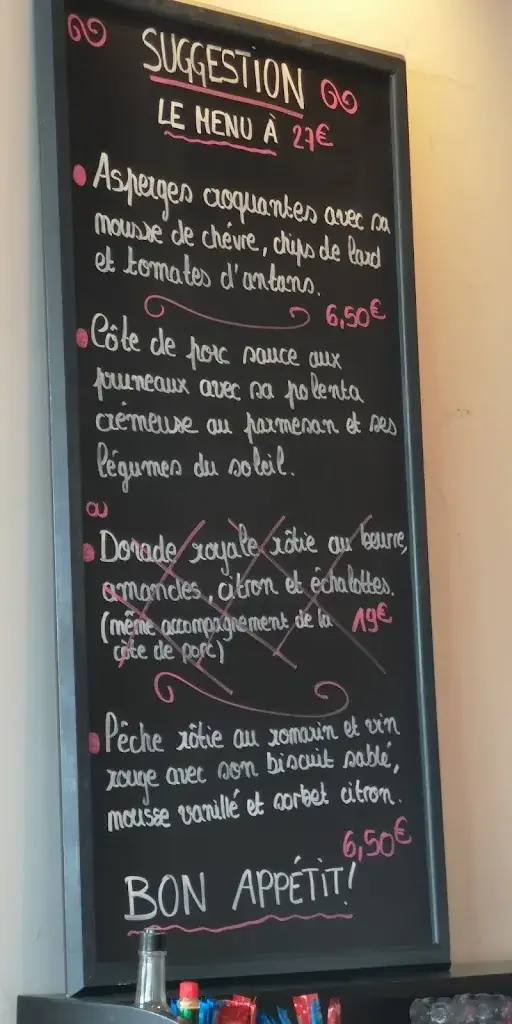 SUGGESTION
LE MENU À 27€
Asperges croquantes avec sa
mousse de chèvre, chips de lard
et tomates d'antans.
6,50€
Côte de porc sauce aux
pruneaux avec sa polenta
crémeuse au parmesan et ses
légumes du soleil.
ou
Dorade royale rôtie au beurre,
amandes, citron et échalottes.
(même accompagnement de la 19€
côte de porc)
Pêche rôtie au romarin et vin
rouge avec son biscuit sablé,
mousse vanillé et sorbet citron.
6,50€
BON APPÉTIT!